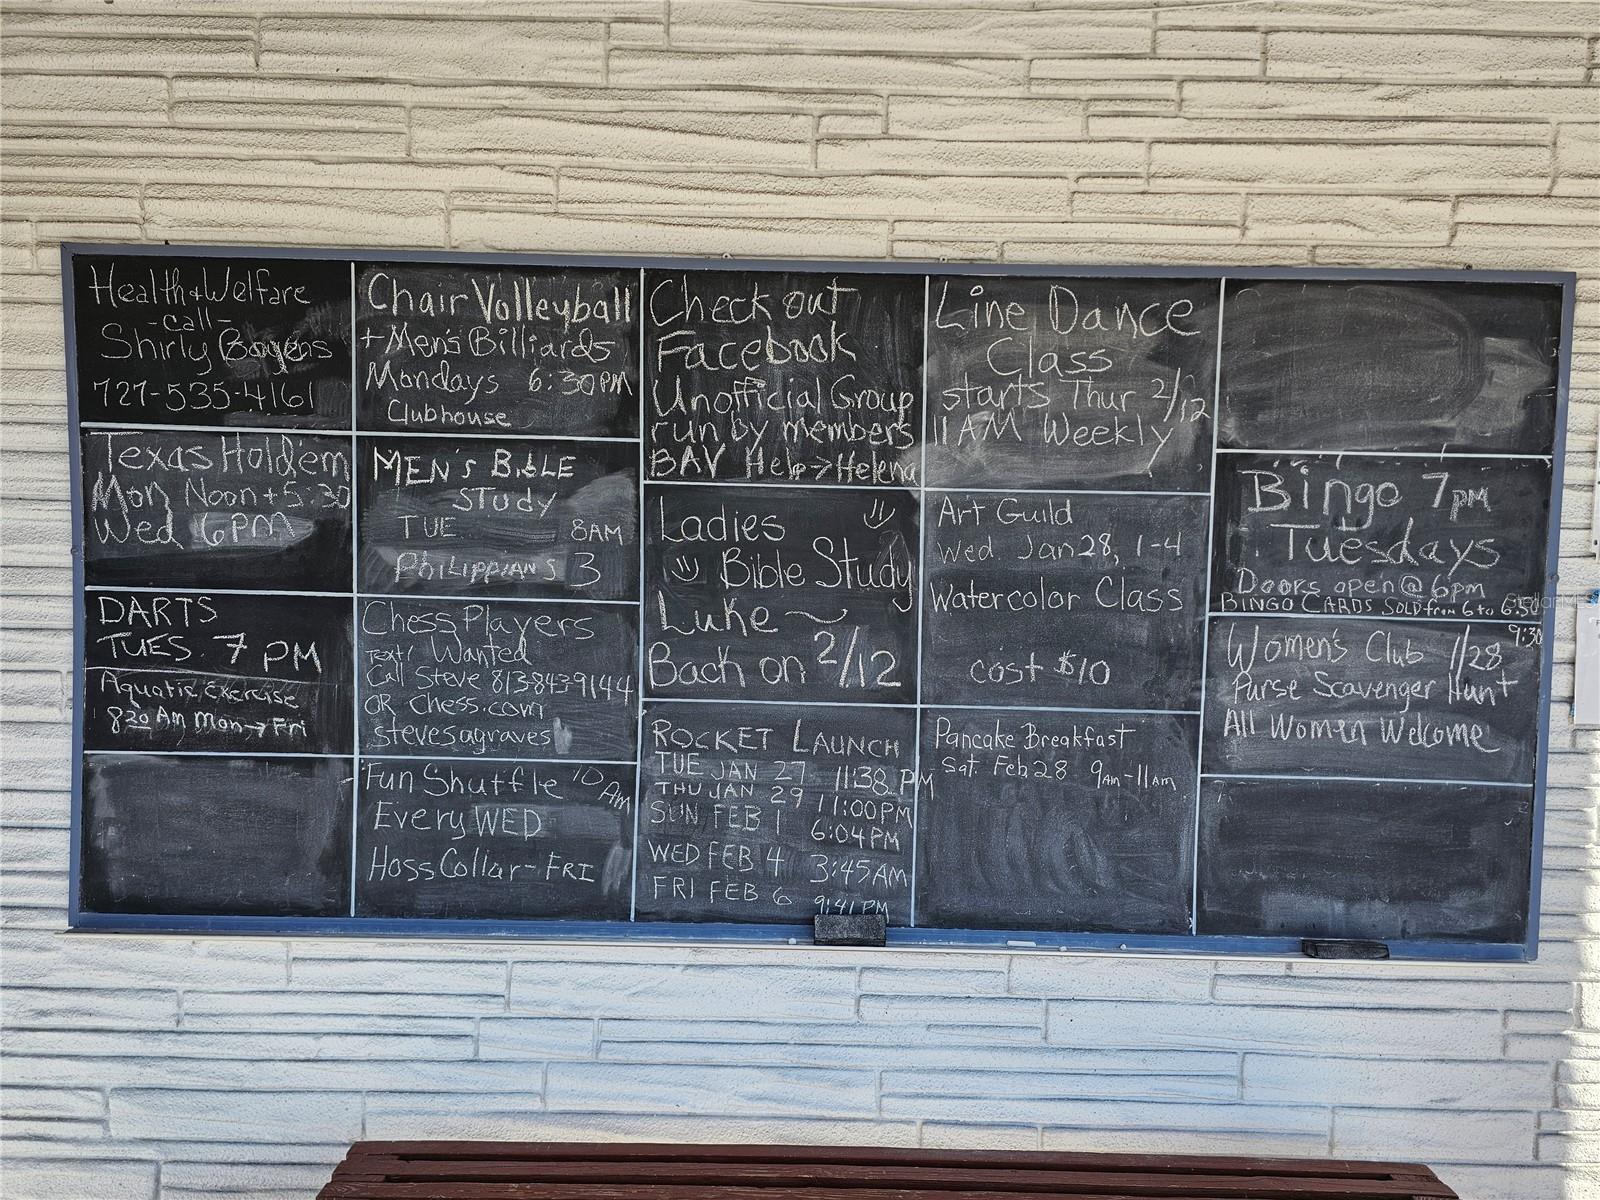 Health & Welfare
-call-
Shirly
727-535-4161
Texas Hold'em
Mon Noon + 5:30
Wed 6PM
DARTS
TUES. 7 PM
Aquatic Exercise
830 Am Mon → Fri
Chair Volleyball
+ Men's Billiards
Mondays 6:30PM
Clubhouse
MEN'S BIBLE
STUDY
TUE 8AM
PHILIPPIANS 3
Chess Players
text/ Wanted
Call Steve 8138439144
OR chess.com
stevesagraves
Fun Shuffle 10 Am
Every WED
Hoss Collar - FRI
Check out
Facebook
Unofficial Group
run by members
BAV Help → Helena
Ladies
Bible Study
Luke
Back on 2/12
ROCKET LAUNCH
TUE JAN 27 11:38 PM
THU JAN 29 11:00PM
SUN FEB 1 6:04PM
WED FEB 4 3:45AM
FRI FEB 6 9:41 PM
Line Dance
Class
starts Thur 2/12
11AM Weekly
Art Guild
Wed Jan 28, 1-4
Watercolor Class
cost $10
Pancake Breakfast
Sat. Feb 28 9AM-11AM
Bingo 7pm
Tuesdays
Doors open @ 6pm
BINGO CARDS SOLD from 6 to 6:50
Women's Club 1/28 9:30
Purse Scavenger Hunt
All Women Welcome